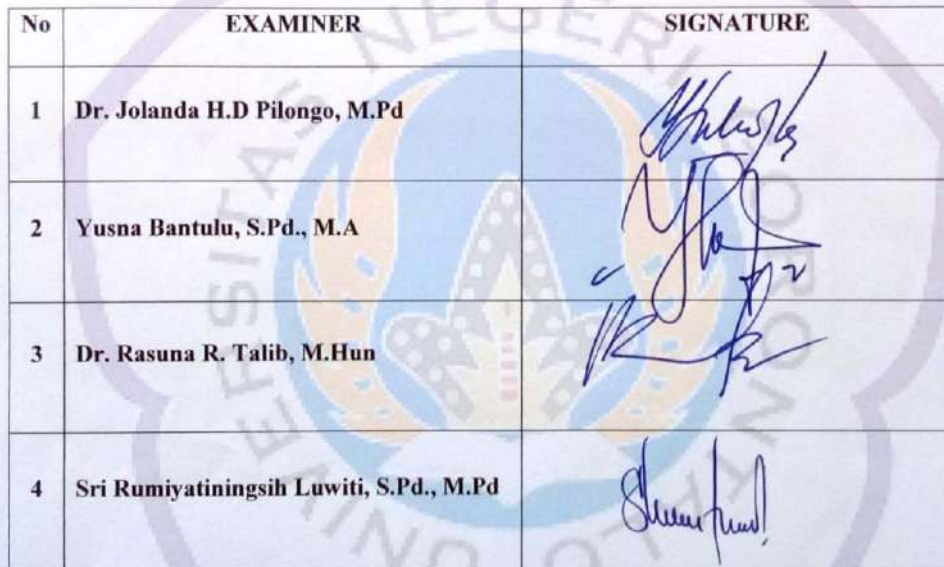 No EXAMINER SIGNATURE
1 Dr. Jolanda H.D Pilongo, M.Pd
2 Yusna Bantulu, S.Pd., M.A
3 Dr. Rasuna R. Talib, M.Hun
4 Sri Rumiyatiningsih Luwiti, S.Pd., M.Pd
UNIVERSITAS NEGERI GORONTALO